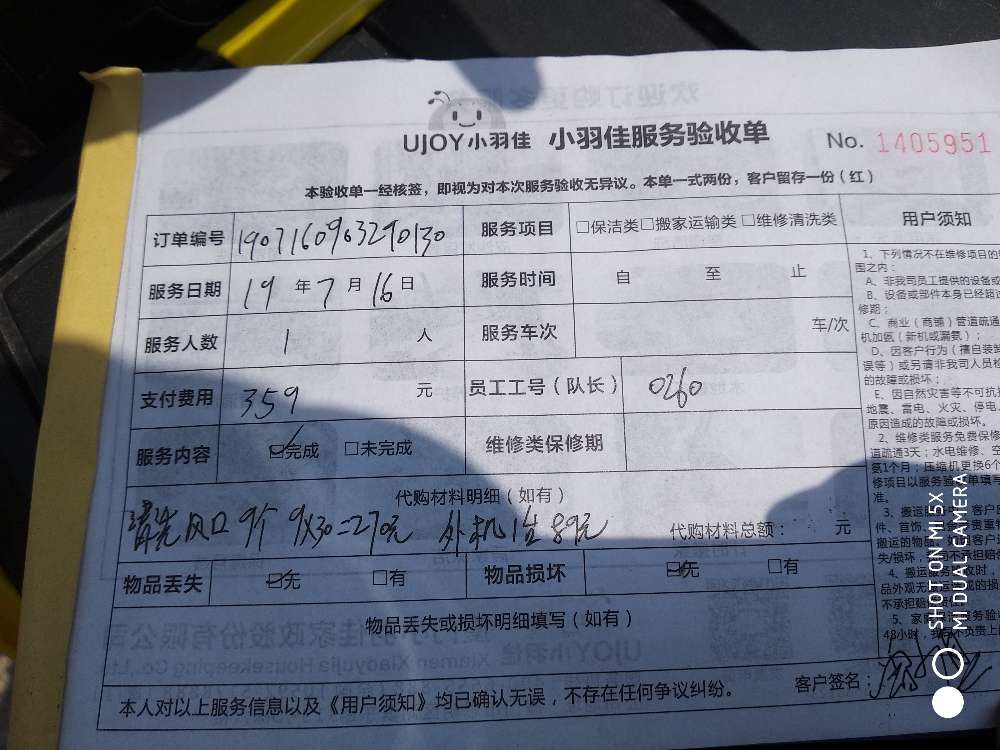 UJOY小羽佳 小羽佳服务验收单 No. 1405951
本验收单一经核签，即视为对本次服务验收无异议。本单一式两份，客户留存一份（红）
订单编号 1907160963290130 服务项目 □保洁类□搬家运输类□维修清洗类 用户须知
服务日期 19 年 7 月 16 日 服务时间 自 至 止
服务人数 1 人 服务车次 车/次
支付费用 359 元 员工工号（队长） 0260
服务内容 ☑完成 □未完成 维修类保修期
代购材料明细（如有）
清洗风口9个 9X30=270元 外机1台 89元 代购材料总额： 元
物品丢失 ☑无 □有 物品损坏 ☑无 □有
物品丢失或损坏明细填写（如有）
本人对以上服务信息以及《用户须知》均已确认无误，不存在任何争议纠纷。 客户签名：
1、下列情况不在维修项目的
围之内：
A、非我司员工提供的设备或
B、设备或部件本身已经超过
修期；
C、商业（商铺）管道疏通
机加氨（新机或漏氨）；
D、因客户行为（擅自装卸
误等）或另请非我司人员检
的故障或损坏；
E、因自然灾害等不可抗
地震、雷电、火灾、停电
原因造成的故障或损坏。
2、维修类服务免费保修
道疏通3天；水电维修、空
氨1个月；压缩机更换6个
修项目以服务验收单填写
准。
3、搬运
件、首饰
搬运的物品
失/损坏
4、搬运服
品外观无
不承担赔
5、家
48小时，我司不负责
SHOT ON MI 5X
MI DUAL CAMERA